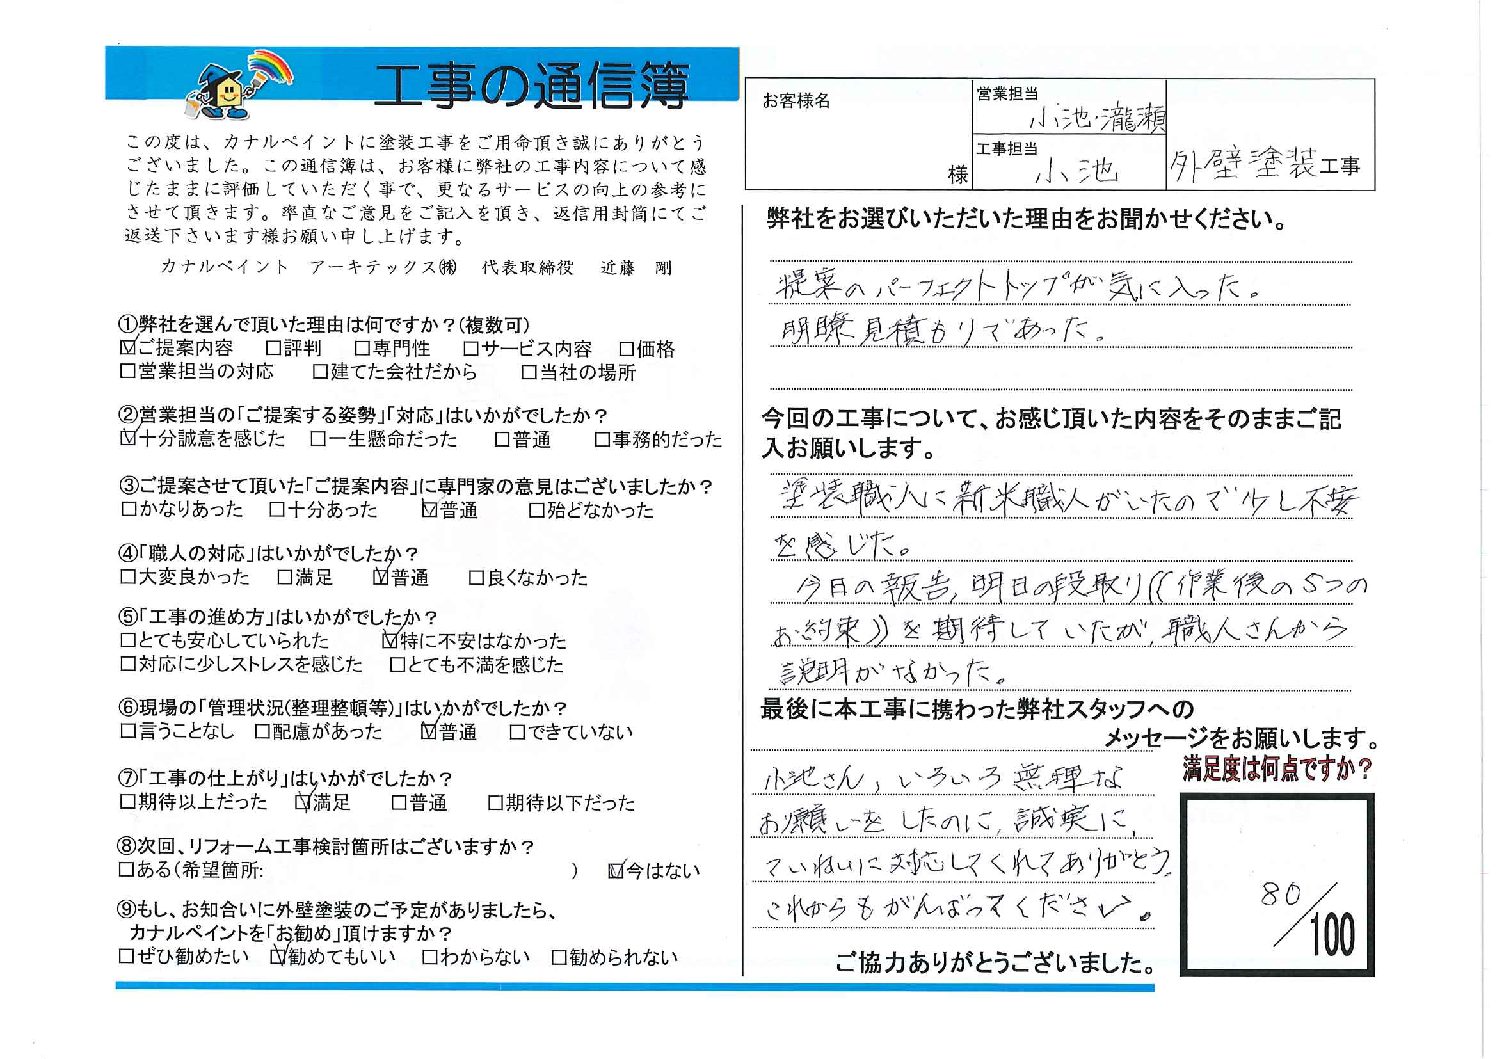 工事の通信簿
この度は、カナルペイントに塗装工事をご用命頂き誠にありがとう
ございました。この通信簿は、お客様に弊社の工事内容について感
じたままに評価していただく事で、更なるサービスの向上の参考に
させて頂きます。率直なご意見をご記入を頂き、返信用封筒にてご
返送下さいます様お願い申し上げます。
カナルペイント アーキテックス㈱ 代表取締役 近藤 剛
①弊社を選んで頂いた理由は何ですか？(複数可)
☑ご提案内容 □評判 □専門性 □サービス内容 □価格
□営業担当の対応 □建てた会社だから □当社の場所
②営業担当の｢ご提案する姿勢｣｢対応｣はいかがでしたか？
☑十分誠意を感じた □一生懸命だった □普通 □事務的だった
③ご提案させて頂いた｢ご提案内容｣に専門家の意見はございましたか？
□かなりあった □十分あった ☑普通 □殆どなかった
④｢職人の対応｣はいかがでしたか？
□大変良かった □満足 ☑普通 □良くなかった
⑤｢工事の進め方｣はいかがでしたか？
□とても安心していられた ☑特に不安はなかった
□対応に少しストレスを感じた □とても不満を感じた
⑥現場の｢管理状況(整理整頓等)｣はいかがでしたか？
□言うことなし □配慮があった ☑普通 □できていない
⑦｢工事の仕上がり｣はいかがでしたか？
□期待以上だった ☑満足 □普通 □期待以下だった
⑧次回、リフォーム工事検討箇所はございますか？
□ある(希望箇所: ) ☑今はない
⑨もし、お知合いに外壁塗装のご予定がありましたら、
カナルペイントを｢お勧め｣頂けますか？
□ぜひ勧めたい ☑勧めてもいい □わからない □勧められない
お客様名
様
営業担当
小池・瀧瀬
工事担当
小池
外壁塗装工事
弊社をお選びいただいた理由をお聞かせください。
提案のパーフェクトトップが気に入った。
明瞭見積もりであった。
今回の工事について、お感じ頂いた内容をそのままご記
入お願いします。
塗装職人に新米職人がいたので少し不安
を感じた。
今日の報告,明日の段取り((作業後の5つの
お約束))を期待していたが,職人さんから
説明がなかった。
最後に本工事に携わった弊社スタッフへの
メッセージをお願いします。
小池さん,いろいろ無理な
お願いをしたのに,誠実に,
ていねいに対応してくれてありがとう。
これからもがんばってください。
満足度は何点ですか？
80/100
ご協力ありがとうございました。